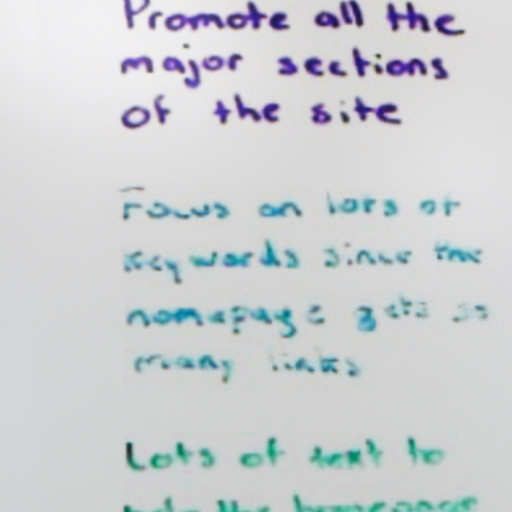 Promote all the
major sections
of the site
Focus on lots of
keywords since the
homepage gets so
many links
Lots of text to
help the homepage